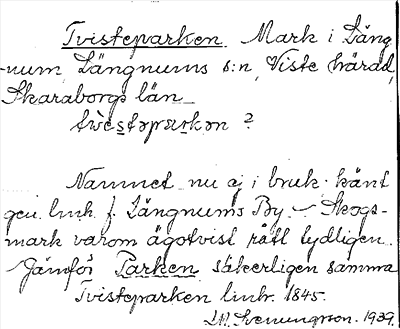 Tvisteparken. Mark i Läng-
num, Längnums s:n, Viste härad,
Skaraborgs län
twèstəparkən ?
Namnet nu ej i bruk. känt
gen. linh. f. Längnums By. – Skogs-
mark varom ägotvist rått tydligen.
– Jämför Parken säkerligen samma
Tvisteparken linhr. 1845.
Svenungson. 1939.